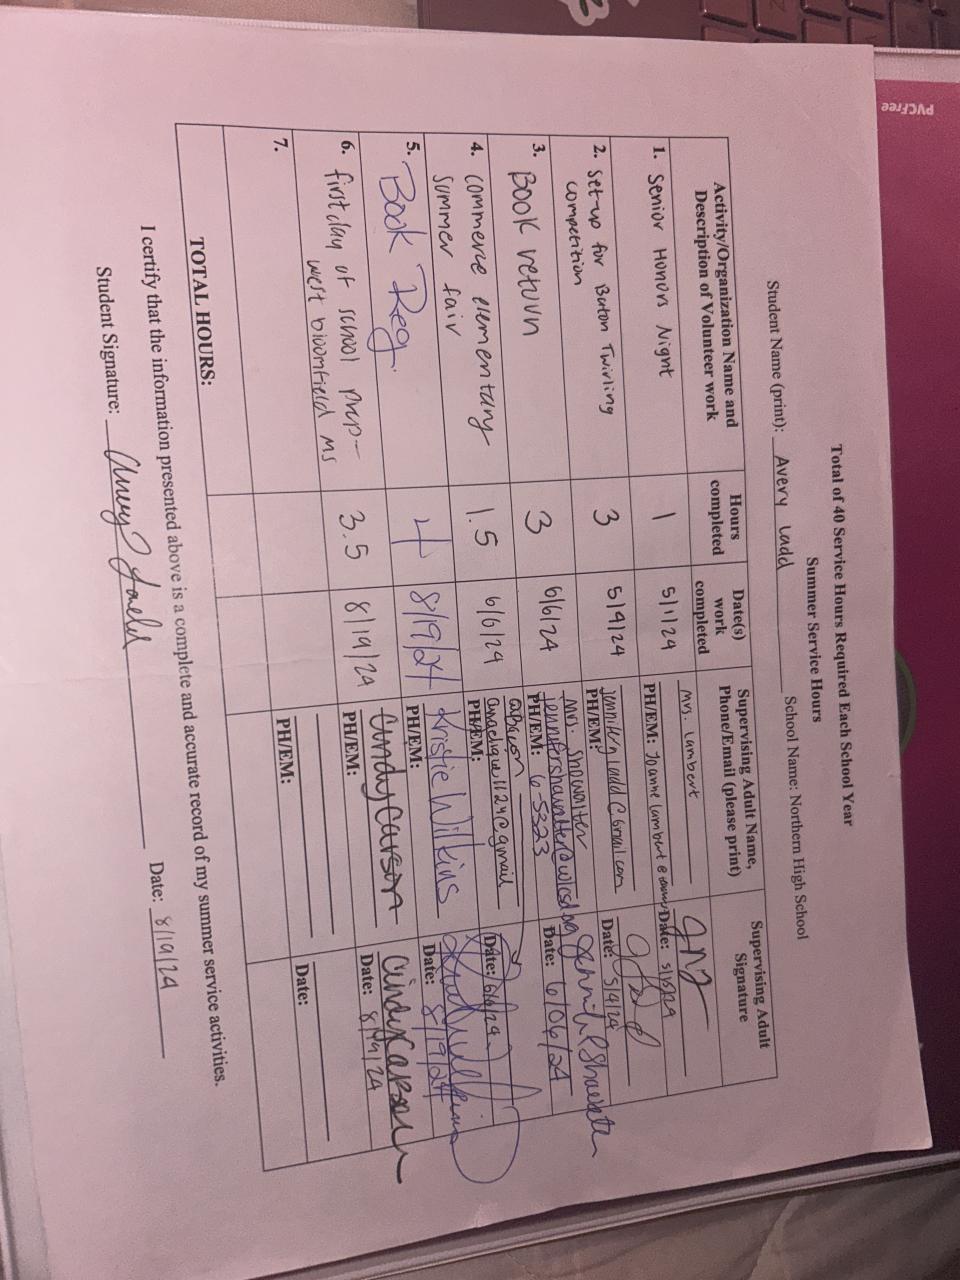 PVCFree
Total of 40 Service Hours Required Each School Year
Summer Service Hours
Student Name (print): Avery Ladd School Name: Northern High School
Activity/Organization Name and
Description of Volunteer work
Hours
completed
Date(s)
work
completed
Supervising Adult Name,
Phone/Email (please print)
Supervising Adult
Signature
1. Senior Honors Night
1
5/1/24
Mrs. Lambert
PH/EM: Joanne lambert @
Date:
2. Set-up for Baton Twirling
competition
3
5/4/24
PH/EM:
Date: 5/4/24
3. BOOK return
3
6/6/24
Mrs. Showalter
PH/EM:
Date: 6/06/24
4. commerce elementary
summer fair
1.5
6/6/24
PH/EM:
Date: 6/6/24
5. Book Reg.
4
8/19/24
Kristie Wilkins
PH/EM:
Date: 8/19/24
6. first day of school prep-
west bloomfield MS
3.5
8/19/24
Cindy Carson
PH/EM:
Cindy Carson
Date: 8/19/24
7.
PH/EM:
Date:
TOTAL HOURS:
I certify that the information presented above is a complete and accurate record of my summer service activities.
Student Signature: Avery Ladd Date: 8/19/24